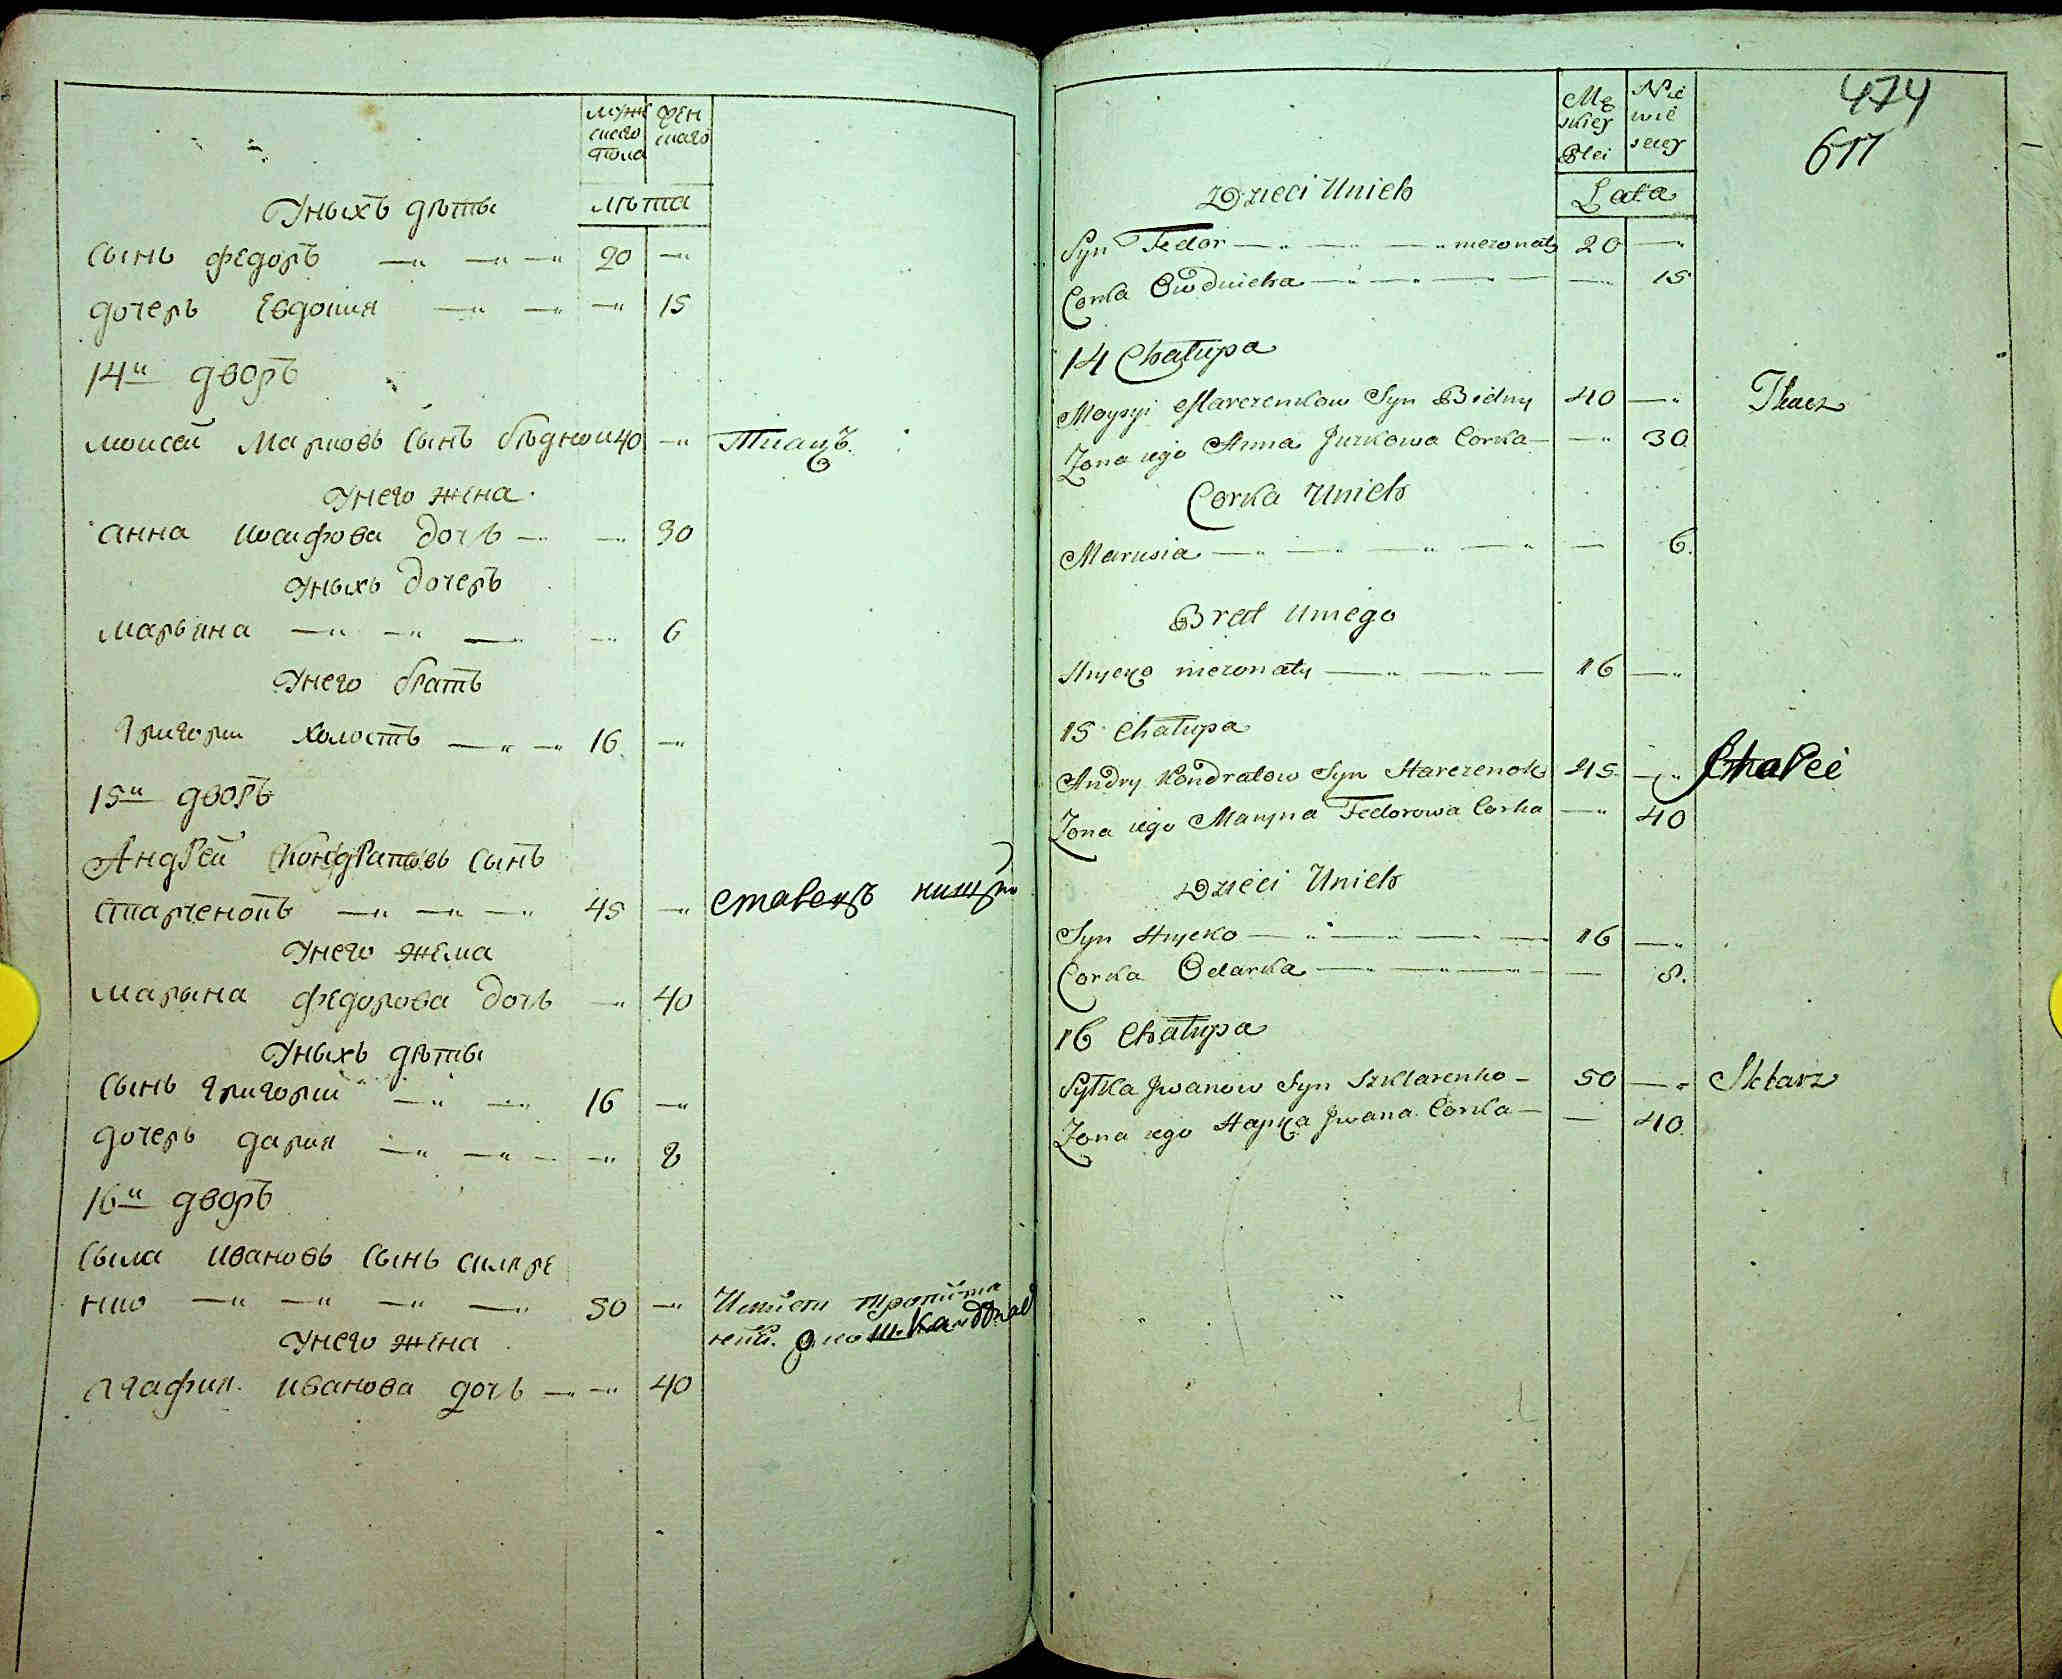 муже
скаго
пола
жен
скаго
лѣта
Уныхъ дѣты
Сынъ Федоръ — — — 20 —
дочеръ Евдокия — — — 15
14й дворъ
Моисей Марковъ Сынъ бѣдной 40 — Ткацъ.
Унего жена
Анна Иосифова дочъ — — 30
Уныхъ дочеръ
Марьяна — — — — 6
Унего братъ
Григорий холостъ — — 16 —
15й дворъ
Андрей Кондратовъ Сынъ
Старченокъ — — — 45 —
Унего жена
Марына Федорова дочъ — 40
Уныхъ дѣты
Сынъ Григорий — — 16 —
дочеръ дария — — — — 8
16й дворъ
Сыла Ивановъ Сынъ скляре
нко — — — — 50 —
Унего жена
Агафия Иванова дочъ — — 40
474
617
Mę
skiey
Płci
Nie
wie
sciey
Lata
Dzieci Unich
Syn Fedor — — — niezonaty 20 —
Corka Owdnicha — — — — — 15
14 Chałupa
Moysyi Marczenkow Syn Bidny 40 — Tkacz
Zona iego Anna Jurkowa Corka — — 30
Corka Unich
Marusia — — — — — — 6.
Brat Uniego
Hryćko niezonaty — — — 16 —
15 Chałupa
Andry Kondratow Syn Starczenok 45 —
Zona iego Maryna Fedorowa Corka — 40
Dzieci Unich
Syn Hryćko — — — — 16 —
Corka Odarka — — — — — 8.
16 Chałupa
Syłka Jwanow Syn Szklarenko — 50 — Sklarz
Zona iego Hapka Jwana Corka — — 40